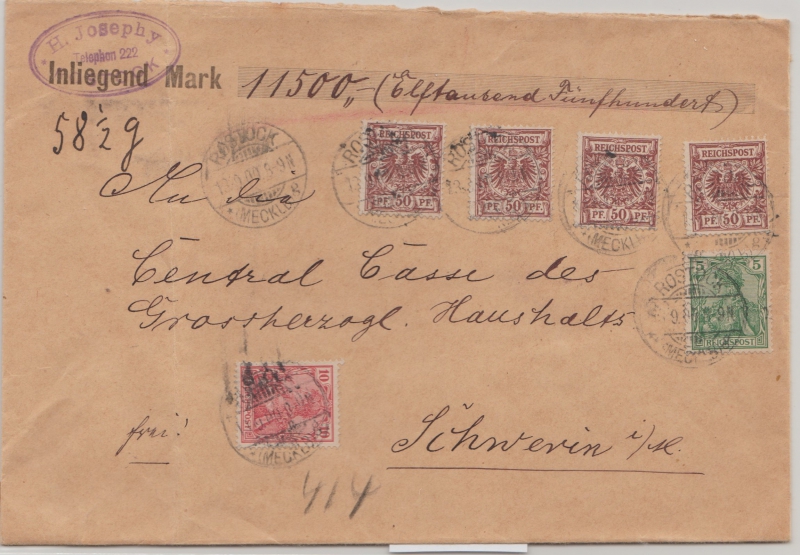 H. Josephy
Telephon 222
Inliegend Mark 11500,- (Elftausend Fünfhundert)
58 1/2 g
ROSTOCK
9-9N
(MECKLB)
REICHSPOST
PF. 50 PF.
REICHSPOST
PF. 50 PF.
REICHSPOST
PF. 50 PF.
REICHSPOST
PF. 50 PF.
An die
Central Casse des
Grossherzogl. Haushalts
5 5
REICHSPOST
10
frei!
Schwerin i/M.
414